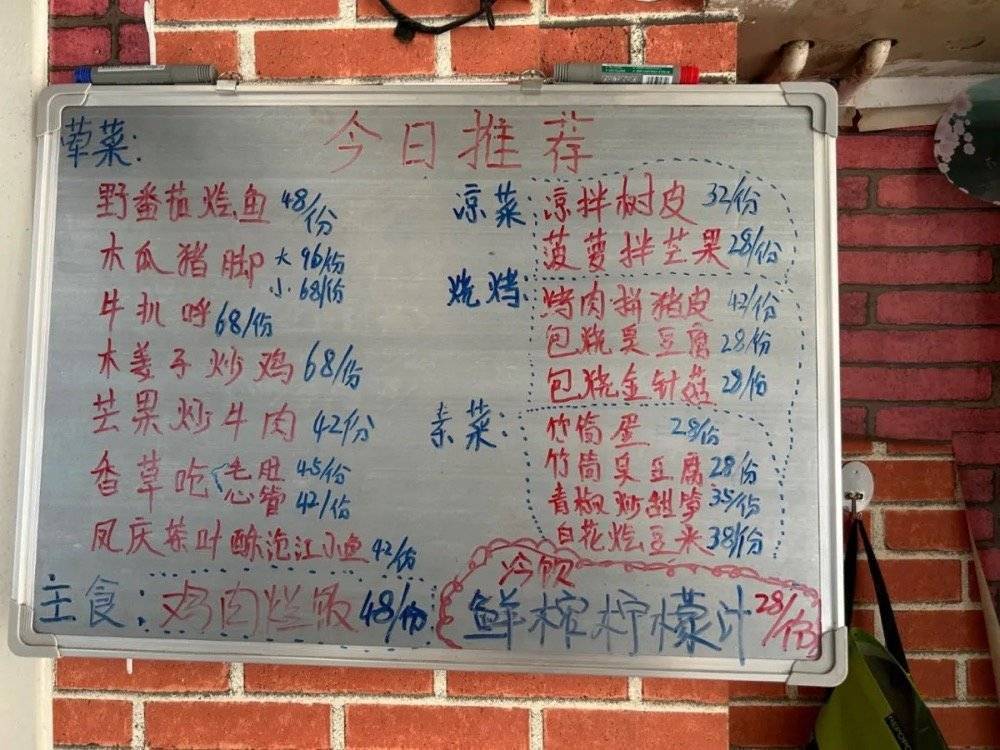 今日推荐
荤菜:
野番茄烩鱼 48/份
木瓜猪脚 大 96/份
小 68/份
牛扒呼 68/份
木姜子炒鸡 68/份
芒果炒牛肉 42/份
香草吃 毛肚 45/份
心管 42/份
凤庆茶叶酥泡江小鱼 42/份
主食: 鸡肉烂饭 48/份
凉菜 凉拌树皮 32/份
菠萝拌芒果 28/份
烧烤: 烤肉拼猪皮 42/份
包烧臭豆腐 28/份
包烧金针菇 28/份
素菜: 竹筒蛋 28/份
竹筒臭豆腐 28/份
青椒炒甜笋 35/份
白花烩豆米 38/份
冷饮
鲜榨柠檬汁 28/份